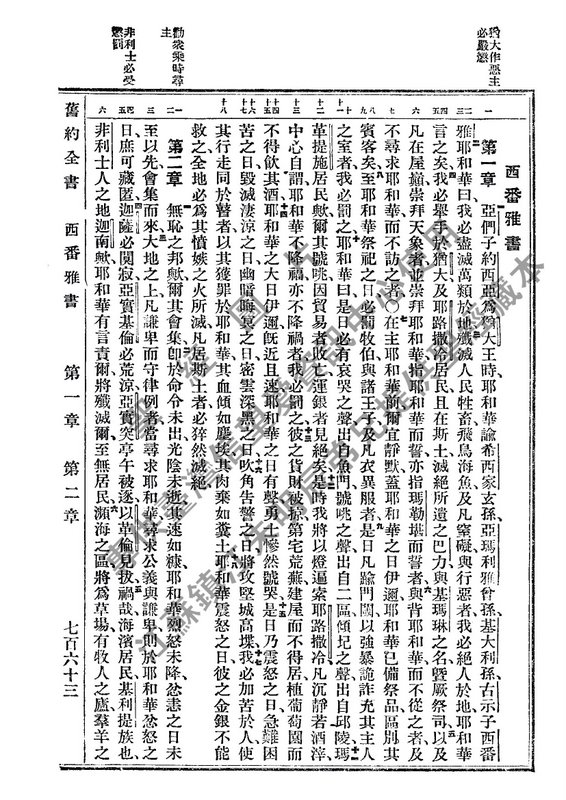 猶大作惡主必嚴懲
勸衆乘時尋主
非利士必受懲罰
西番雅書
第一章 亞們子約西亞爲猶大王時耶和華諭希西家玄孫亞瑪利雅曾孫基大利孫古示子西番
雅耶和華曰我必盡滅萬類於地殲滅人民牲畜飛鳥海魚及凡窒礙與行惡者我必絕人於地耶和華
言之矣我必舉手於猶大及耶路撒冷居民且在斯土滅絕所遺之巴力與基瑪琳之名曁厥祭司以及
凡在屋巔崇拜天象者並崇拜耶和華指耶和華而誓亦指瑪勒堪而誓者與背耶和華而不從之者及
不尋求耶和華而不訪之者〇在主耶和華前爾宜靜默蓋耶和華之日伊邇耶和華已備祭品區別其
賓客矣至耶和華祭祀之日必罰牧伯與諸王子及凡衣異服者是日凡踰門閾以強暴詭詐充其主人
之室者我必罰之耶和華曰是日必有哀哭之聲出自魚門號咷之聲出自二區傾圮之聲出自邱陵瑪
革提施居民歟爾其號咷因貿易者敗亡運銀者見絕矣是時我將以燈遍索耶路撒冷凡沉靜若酒滓
中心自謂耶和華不降福亦不降禍者我必罰之彼之貨財被掠第宅荒蕪建屋而不得居植葡萄園而
不得飲其酒耶和華之大日伊邇旣近且速耶和華之日有聲勇士慘然號哭是日乃震怒之日急難困
苦之日毀滅淒涼之日幽暗晦冥之日密雲深黑之日吹角告警之日將攻堅城高堞我必加苦於人使
其行走同於瞽者以其獲罪於耶和華其血傾如塵土其肉棄如糞土耶和華震怒之日彼之金銀不能
救之全地必爲其憤嫉之火所滅凡居斯土者必猝然滅絕
第二章 無恥之邦歟爾其會集卽於命令未出光陰未逝其速如糠耶和華烈怒未降忿恚之日未
至以先會集而來大地之上凡謙卑而守律例者當尋求耶和華尋求公義與謙卑則於耶和華忿怒之
日庶可藏匿迦薩必闃寂亞實基倫必荒涼亞實突亭午被逐以革倫見拔禍哉海濱居民基利提族也
非利士人之地迦南歟耶和華有言責爾將殲滅爾至無居民瀕海之區將爲草場有牧人之廬羣羊之
舊約全書 西番雅書 第一章 第二章 七百六十三